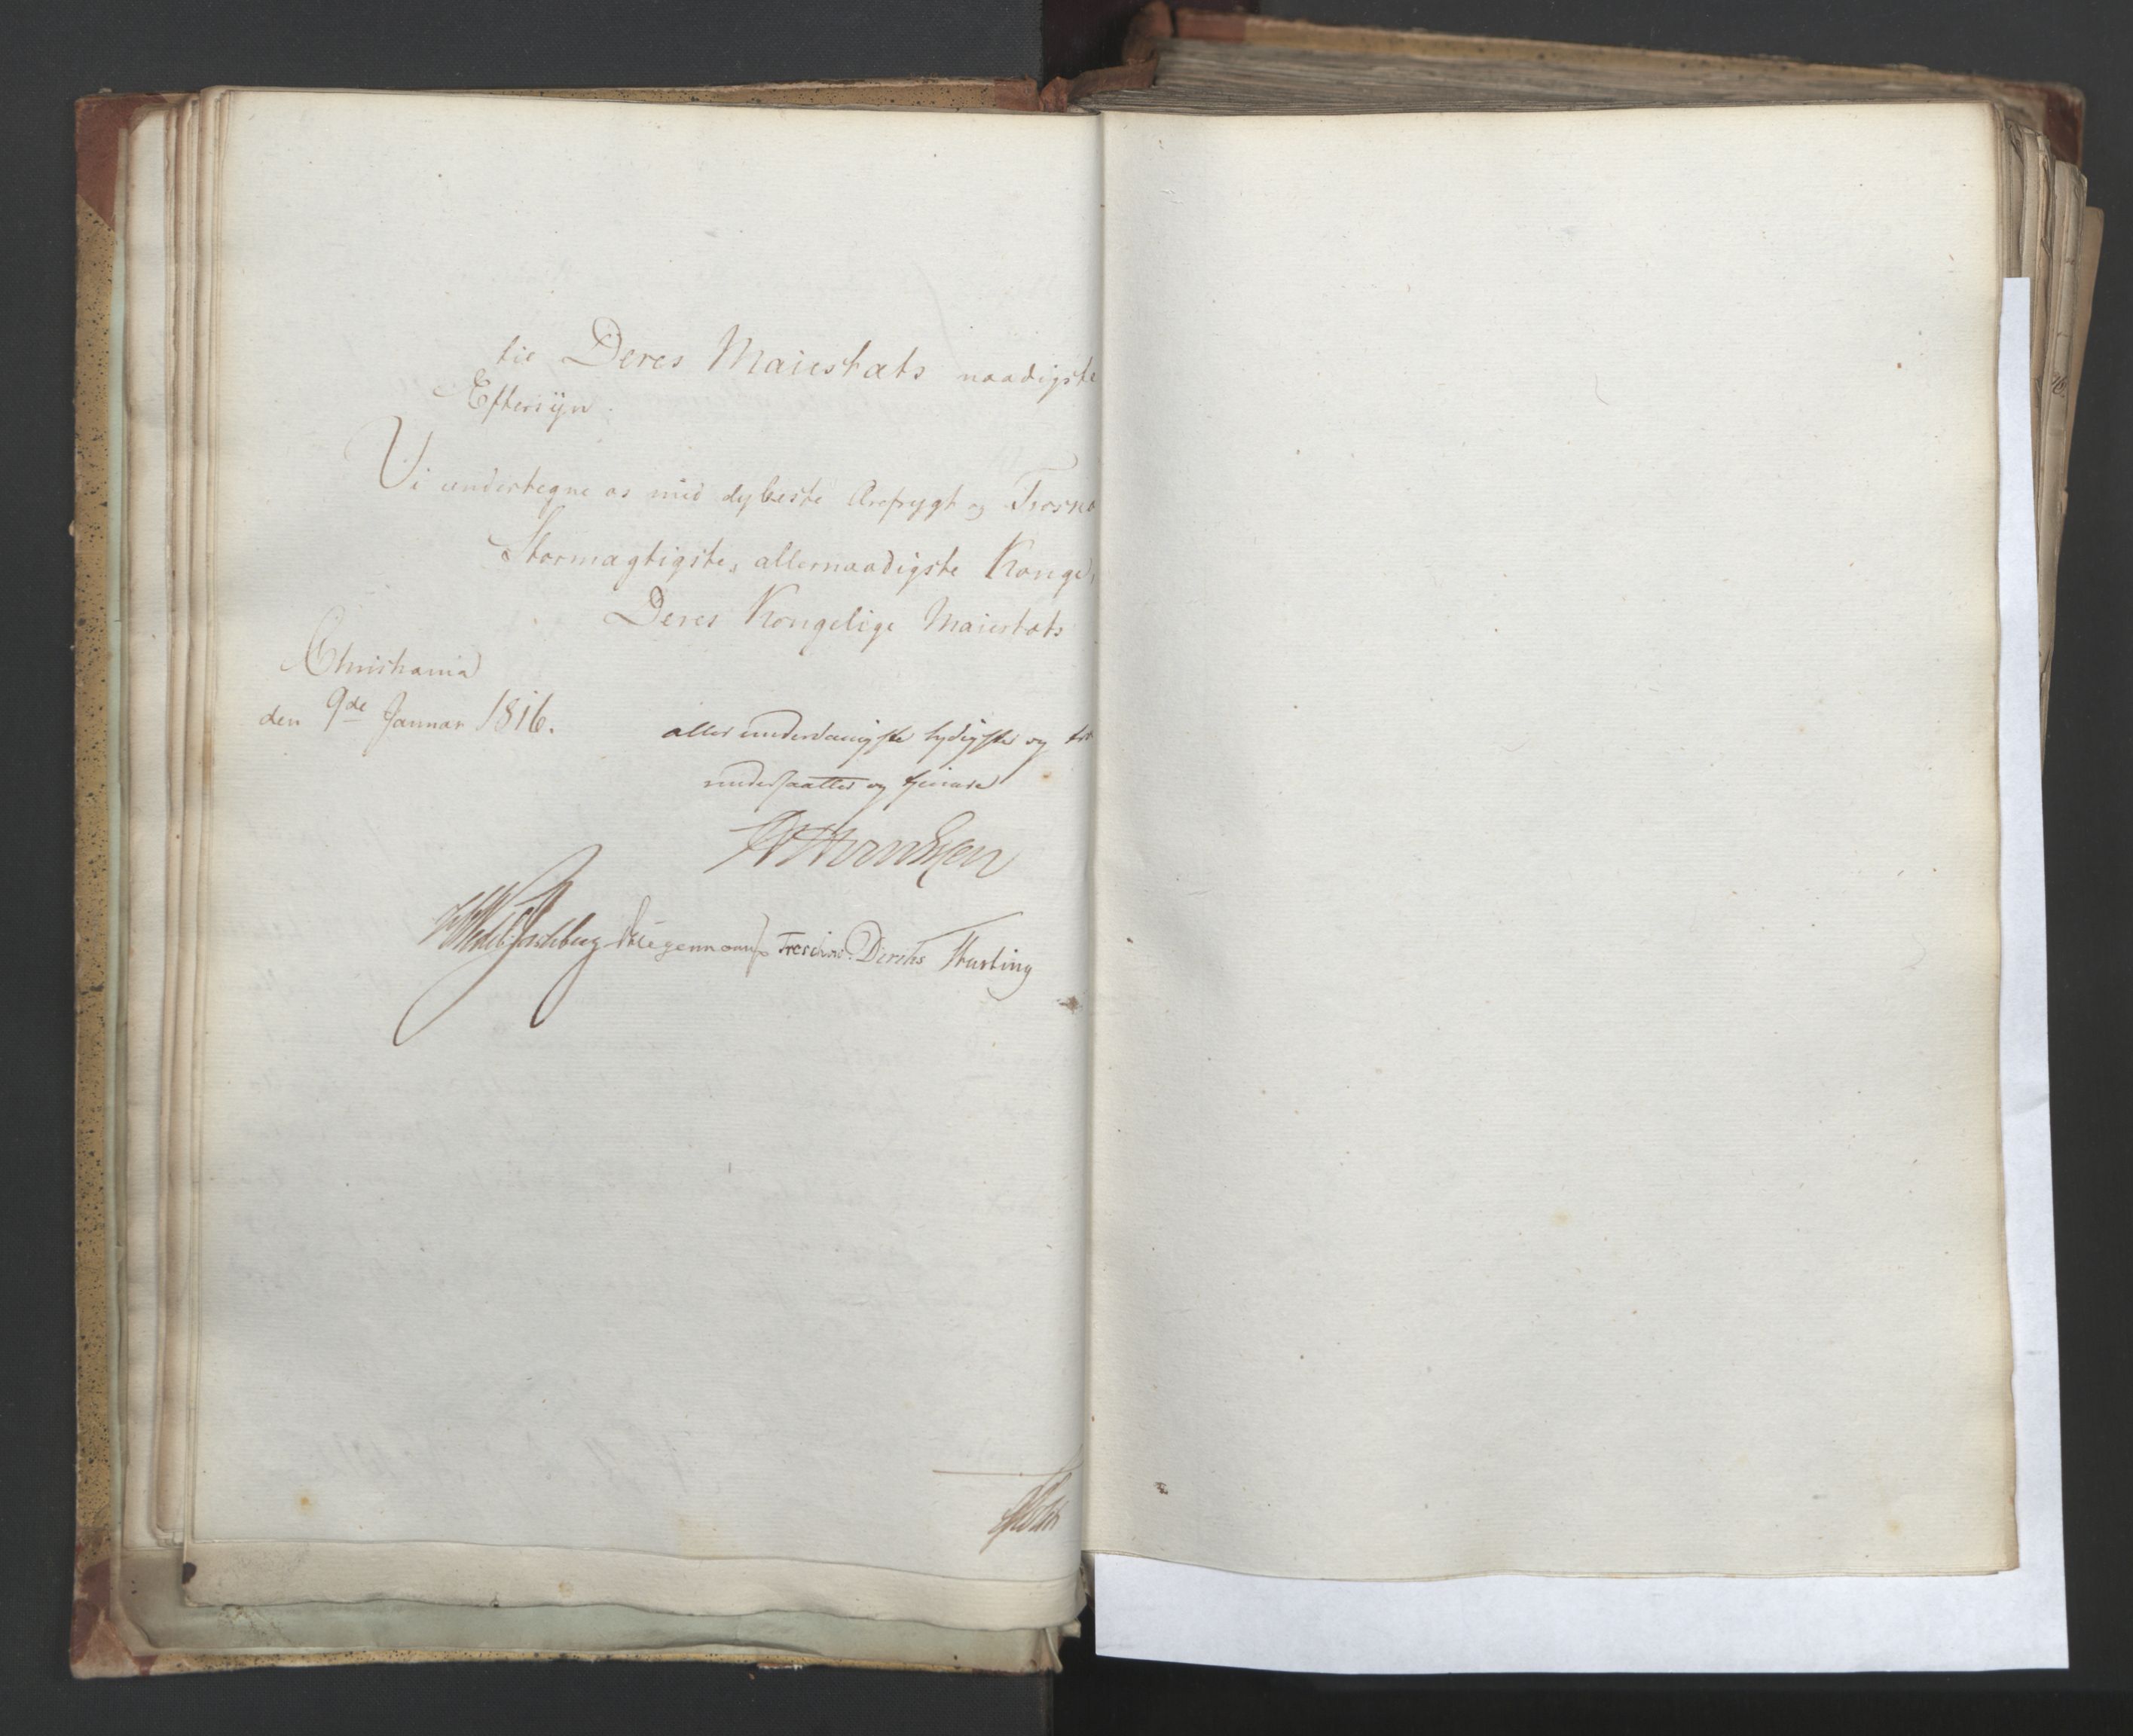 til Deres Maiestæts naadigste
Eftersÿn.
Vi undertegne os med dybeste Ærefrygt og Troska
Stormægtigste, allernaadigste Konge,
Deres Kongelige Maiestæts
Christiania
den 9de Januar 1816.
allerunderdanigste lydigste og tro
undersaatter og tjenere
Mathias Sommerhielm
Wedel Jarlsberg Kriegermann Treschow Diriks Husting